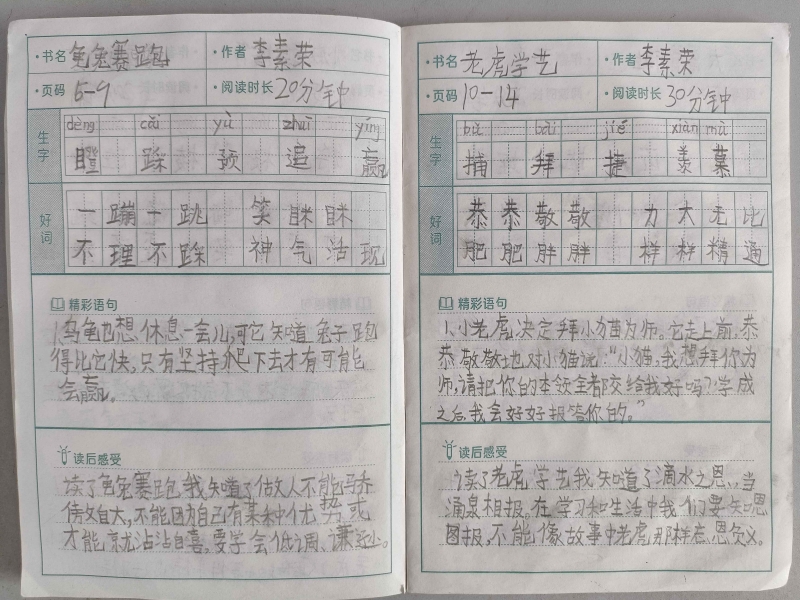 ·书名 龟兔赛跑 ·作者 李素荣
·页码 5-9 ·阅读时长 20分钟
生字
dèng cǎi yù zhuī yíng
瞪 踩 预 追 赢
好词
一蹦一跳 笑眯眯
不理不踩 神气活现
精彩语句
1.乌龟也想休息一会儿,可它知道兔子跑
得比它快,只有坚持爬下去才有可能
会赢。
读后感受
读了龟兔赛跑我知道了做人不能骄
傲自大,不能因为自己有某种优势或
才能就沾沾自喜,要学会低调、谦逊。
·书名 老虎学艺 ·作者 李素荣
·页码 10-14 ·阅读时长 30分钟
生字
bǔ bài jié xiàn mù
捕 拜 捷 羡慕
好词
恭恭敬敬 力大无比
肥肥胖胖 样样精通
精彩语句
1.小老虎决定拜小猫为师。它走上前,恭
恭敬敬地对小猫说:“小猫,我想拜你为
师,请把你的本领全都交给我好吗?学成
之后我会好好报答你的。”
读后感受
读了老虎学艺我知道了滴水之恩、当
涌泉相报。在学习和生活中我们要知恩
图报,不能像故事中老虎那样忘恩负义。